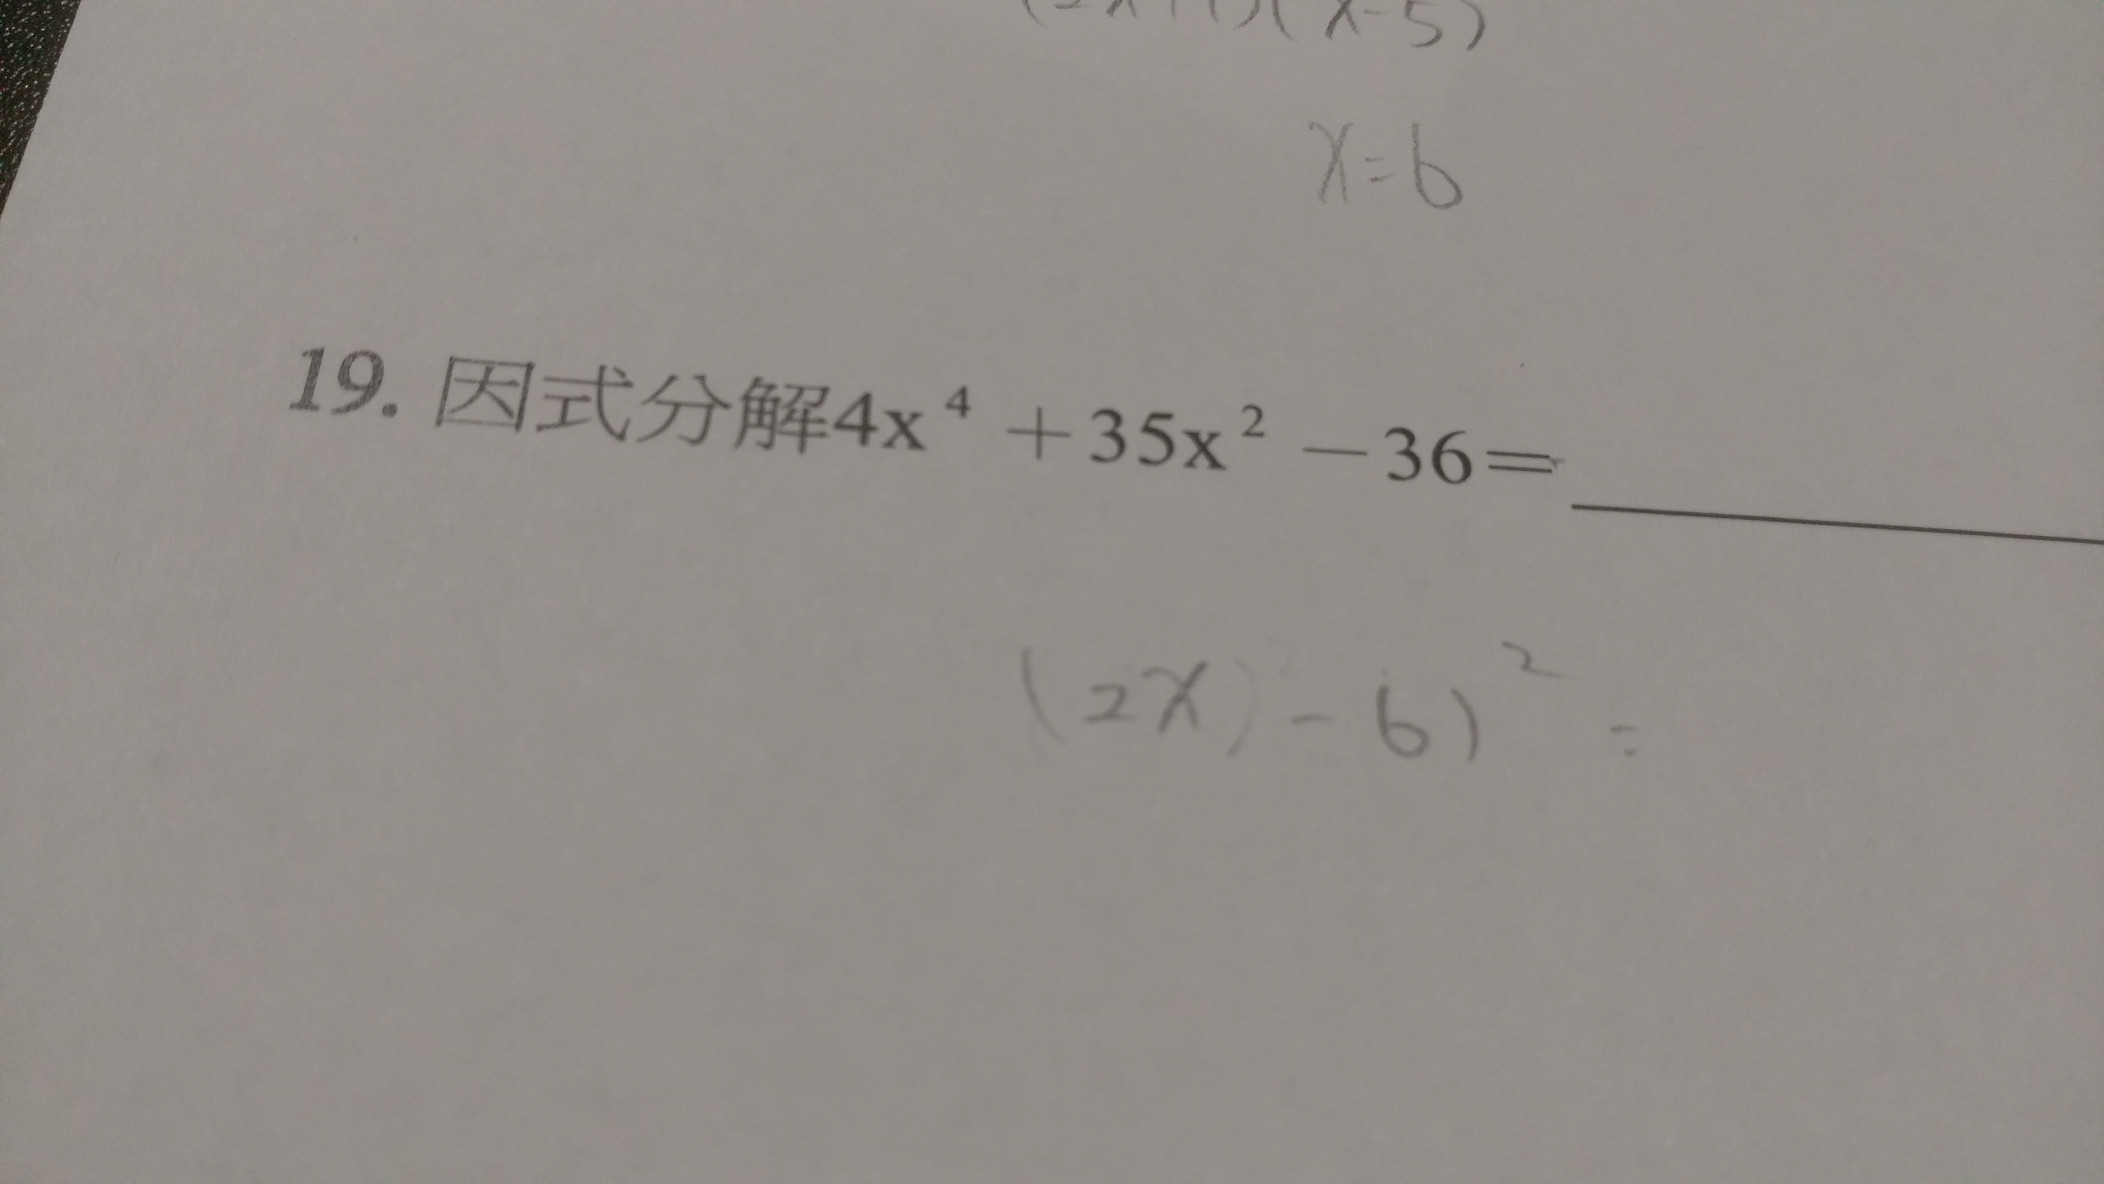 (2x+1)(x-5)
x=6
19. 因式分解4x⁴+35x²-36=
(2x)-6)²=